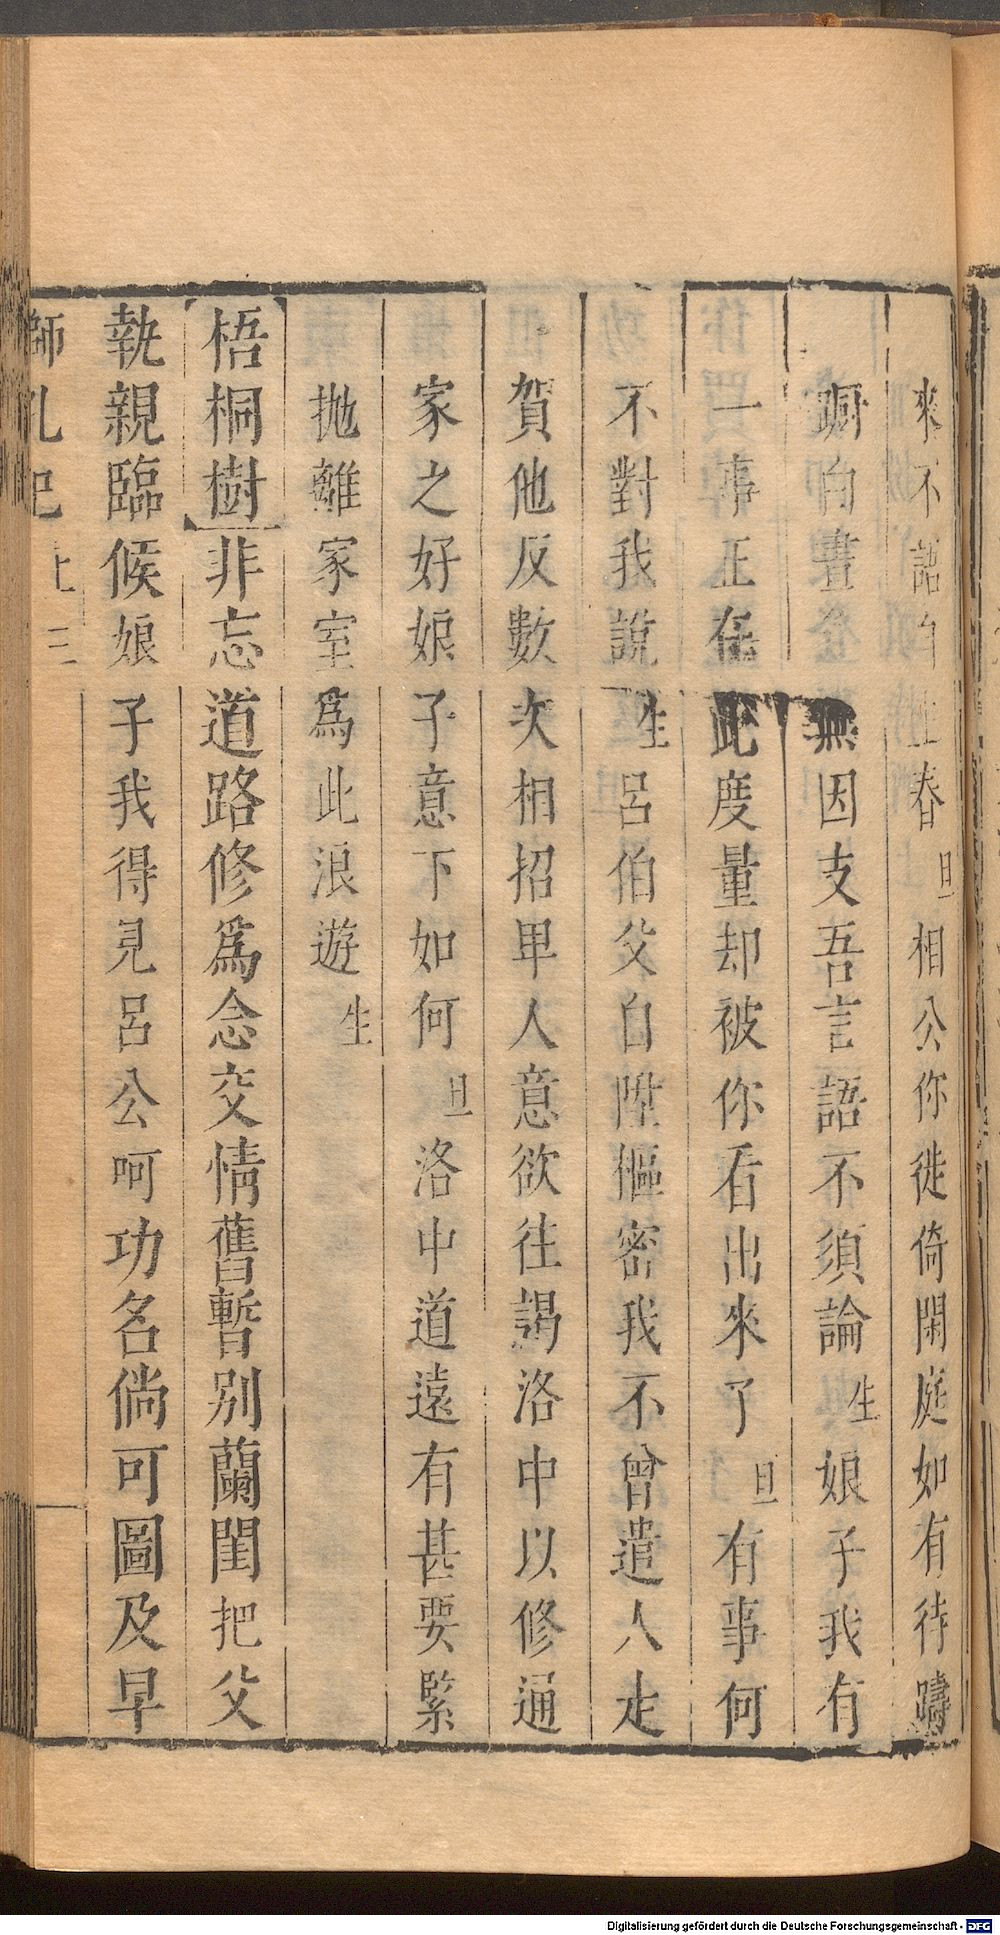 來不語自上春旦相公你徙倚閑庭如有待躊
躕白晝登無因支吾言語不須論生娘子我有
一事正在此度量却被你看出來了旦有事何
不對我說生呂伯父自陞樞密我不曾遣人走
賀他反數次相招早人意欲往謁洛中以修通
家之好娘子意下如何旦洛中道遠有甚要緊
拋離家室爲此浪遊生
梧桐樹非忘道路修爲念交情舊暫別蘭閨把父
執親臨候娘子我得見呂公呵功名倘可圖及早
獅吼記 上 三
Digitalisierung gefördert durch die Deutsche Forschungsgemeinschaft - DFG